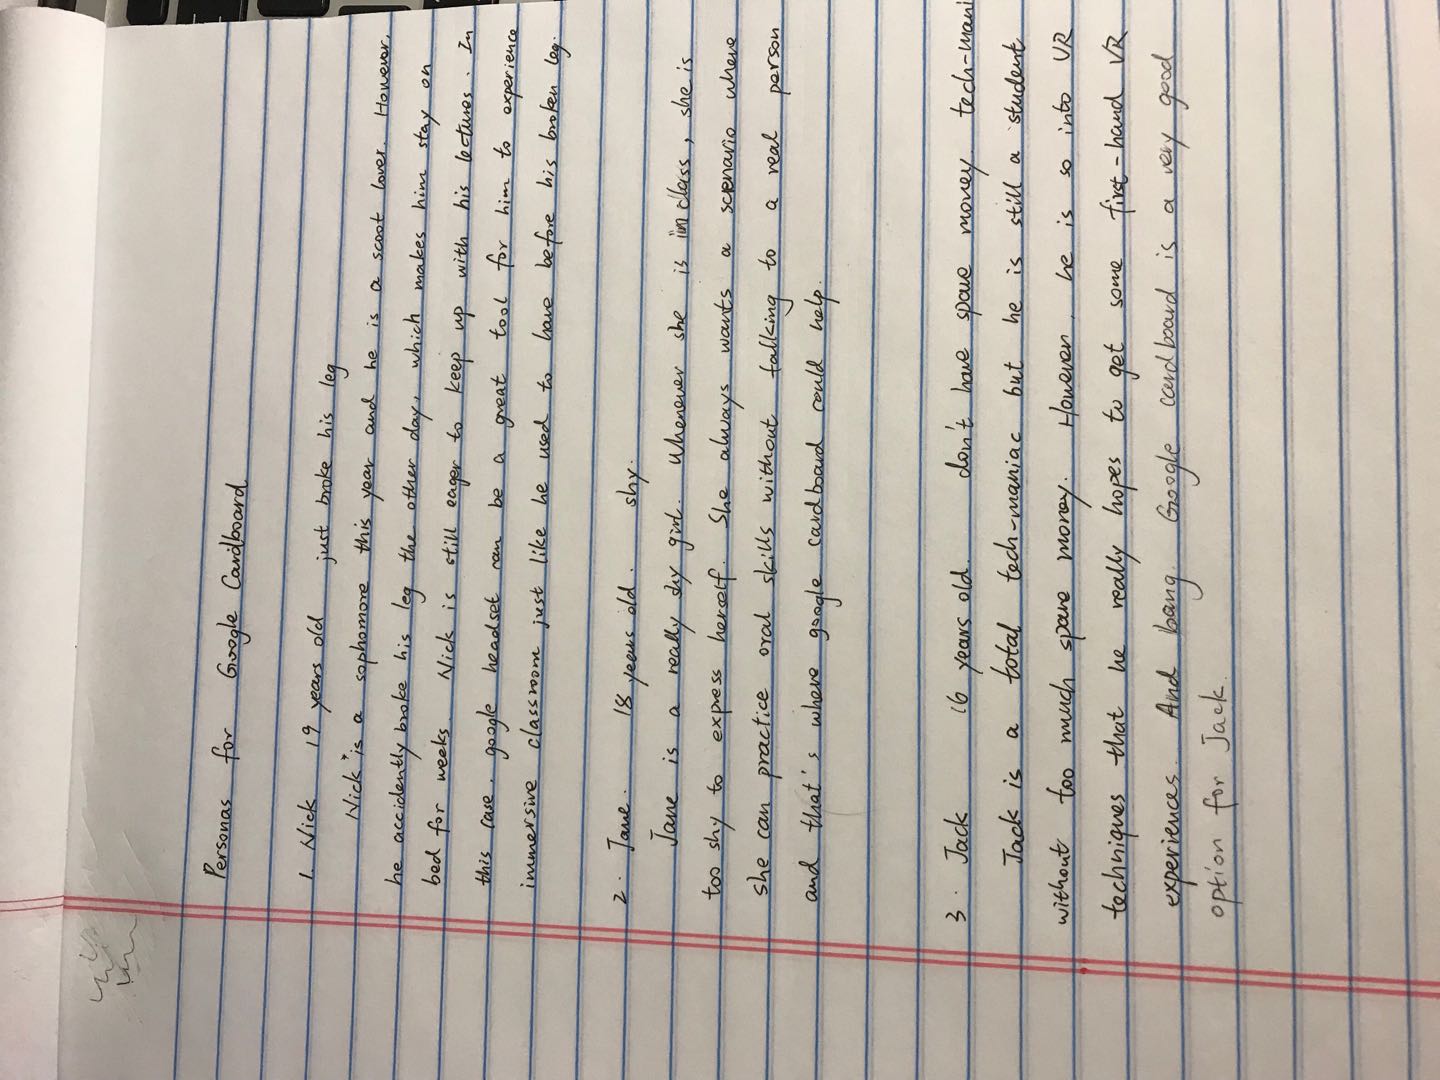 Personas for Google Cardboard
1. Nick 19 years old just broke his leg
Nick is a sophomore this year and he is a scoot lover. However,
he accidently broke his leg the other day, which makes him stay on
bed for weeks. Nick is still eager to keep up with his lectures. In
this case, google headset can be a great tool for him to experience
immersive classroom just like he used to have before his broken leg.
2. Jane. 18 years old. shy.
Jane is a really shy girl. Whenever she is in class, she is
too shy to express herself. She always wants a scenario where
she can practice oral skills without talking to a real person
and that's where google cardboard could help.
3. Jack 16 years old. don't have spare money. tech-mani
Jack is a total tech-maniac but he is still a student
without too much spare money. However, he is so into VR
techniques that he really hopes to get some first-hand VR
experiences. And bang. Google cardboard is a very good
option for Jack.